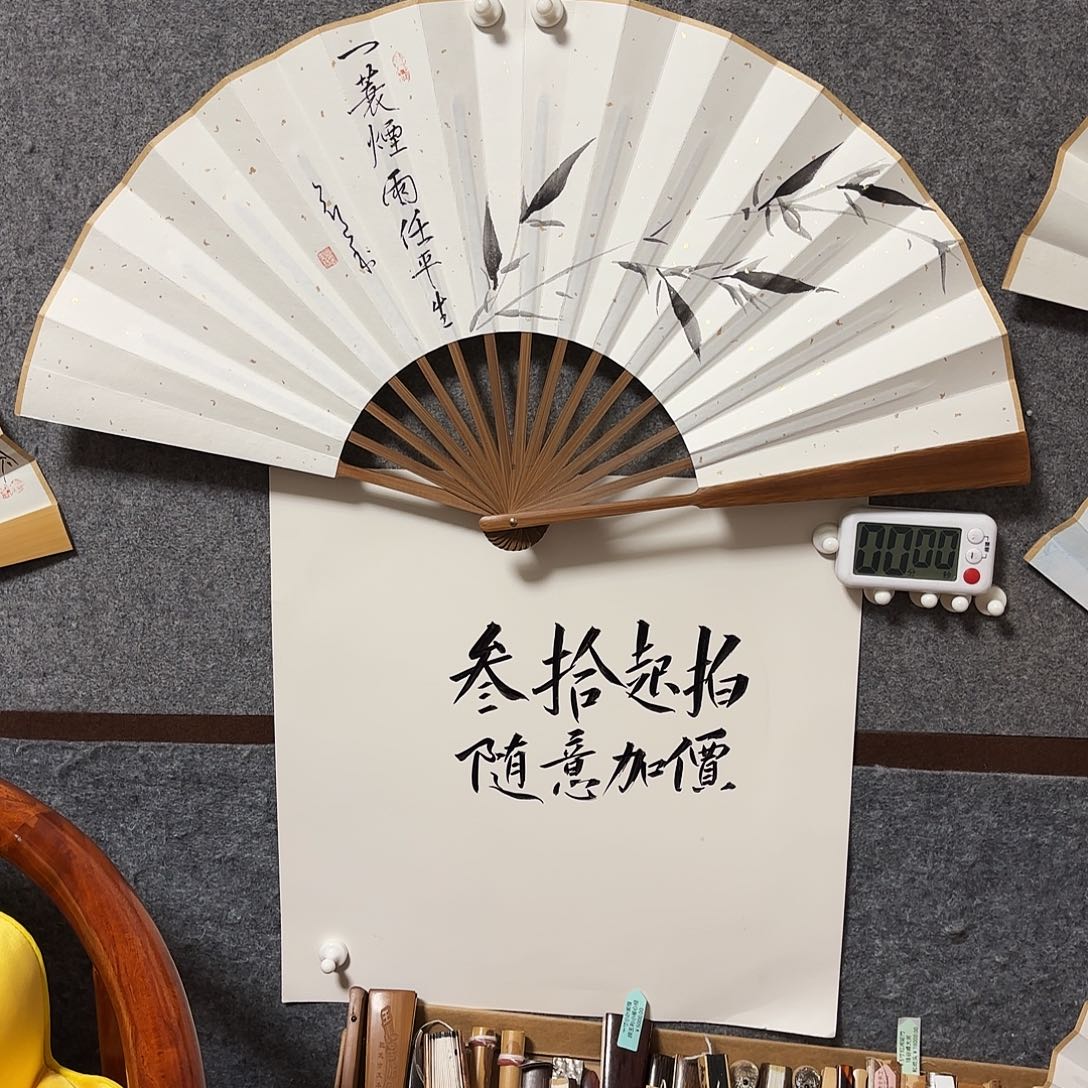 一蓑煙雨任平生
00 00
分 秒
叁拾起拍
随意加價